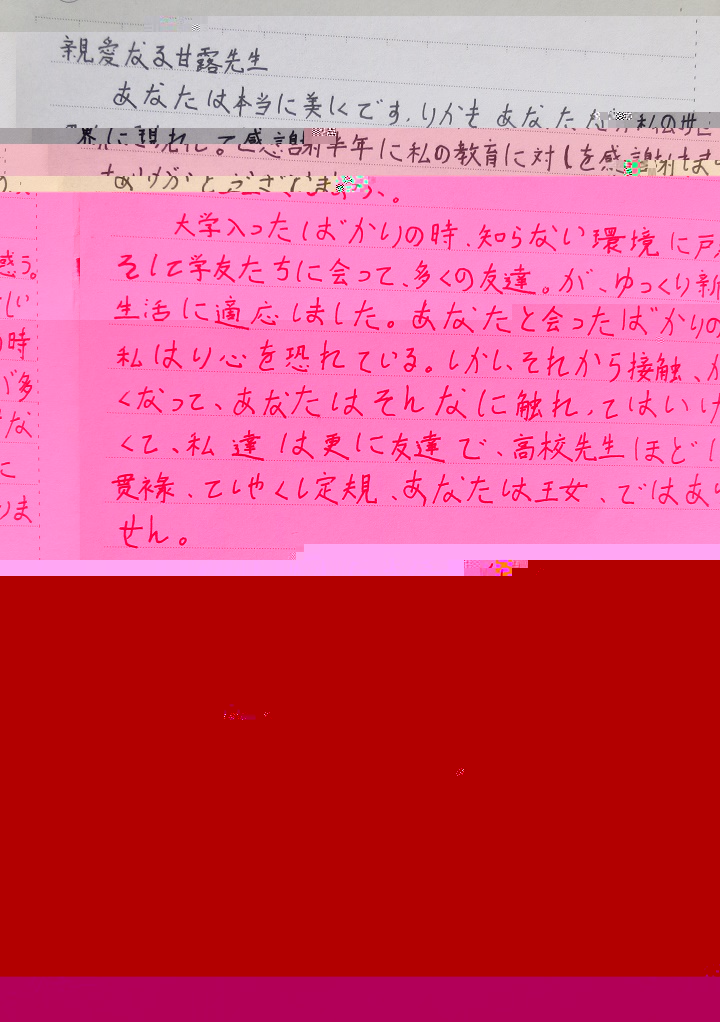 親愛なる甘露先生
あなたは本当に美しくです。りかも あなた が 私の世
界に現れ て感謝半年に私の教育に対しを感謝しま
ありがとうございます。
大学入ったばかりの時、知らない環境に戸
そして学友たちに会って、多くの友達。が、ゆっくり新
生活に適応しました。あなたと会ったばかりの
私はり心を恐れている。しかし、それから接触、か
くなって、あなたはそんなに触れ、てはいけ
くて、私達は更に友達で、高校先生ほど
貫禄、てしやくし定規、あなたは王女、ではあり
せん。
感う。
しい
時
が多
な
に
りま